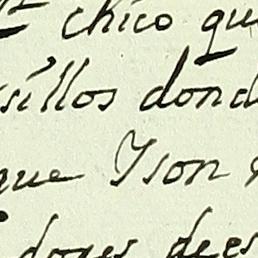 chico qu
sillos dond
que Yson
dores dees